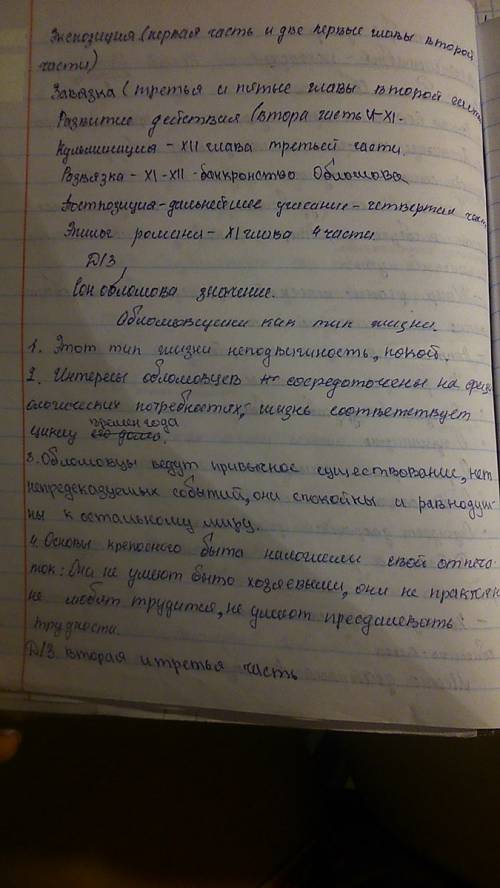 Экспозиция (первая часть и две первые главы второй
части)
Завязка (третья и пятые главы второй части
Развитие действия (втора часть VI-XI-
Кульминация - XII глава третьей части.
Развязка - XI-XII - банкронство Обломова
Постпозиция - дальнейшее - четвертая часть
Эпилог романа - XI глава 4 части.
Д/З
Сон обломова значение.
Обломовсчина как тип жизни.
1. Этот тип жизни неподвигиность, покой.
2. Интересы обломовцев сосредоточены на физи
ологических потребностях; жизнь соответствует
времен года
циклу его долго;
3. Обломовцы ведут привычное существование, нет
непредсказуемых событий, они спокойны и равнодуш-
ны к остальному миру.
4. Основы крепосного быта наложили свой отпеча-
ток: Они не умеют быто хозяевыми, они не практичн
не любят трудится, не умеют преодалевать
трудности.
Д/З. вторая и третья часть